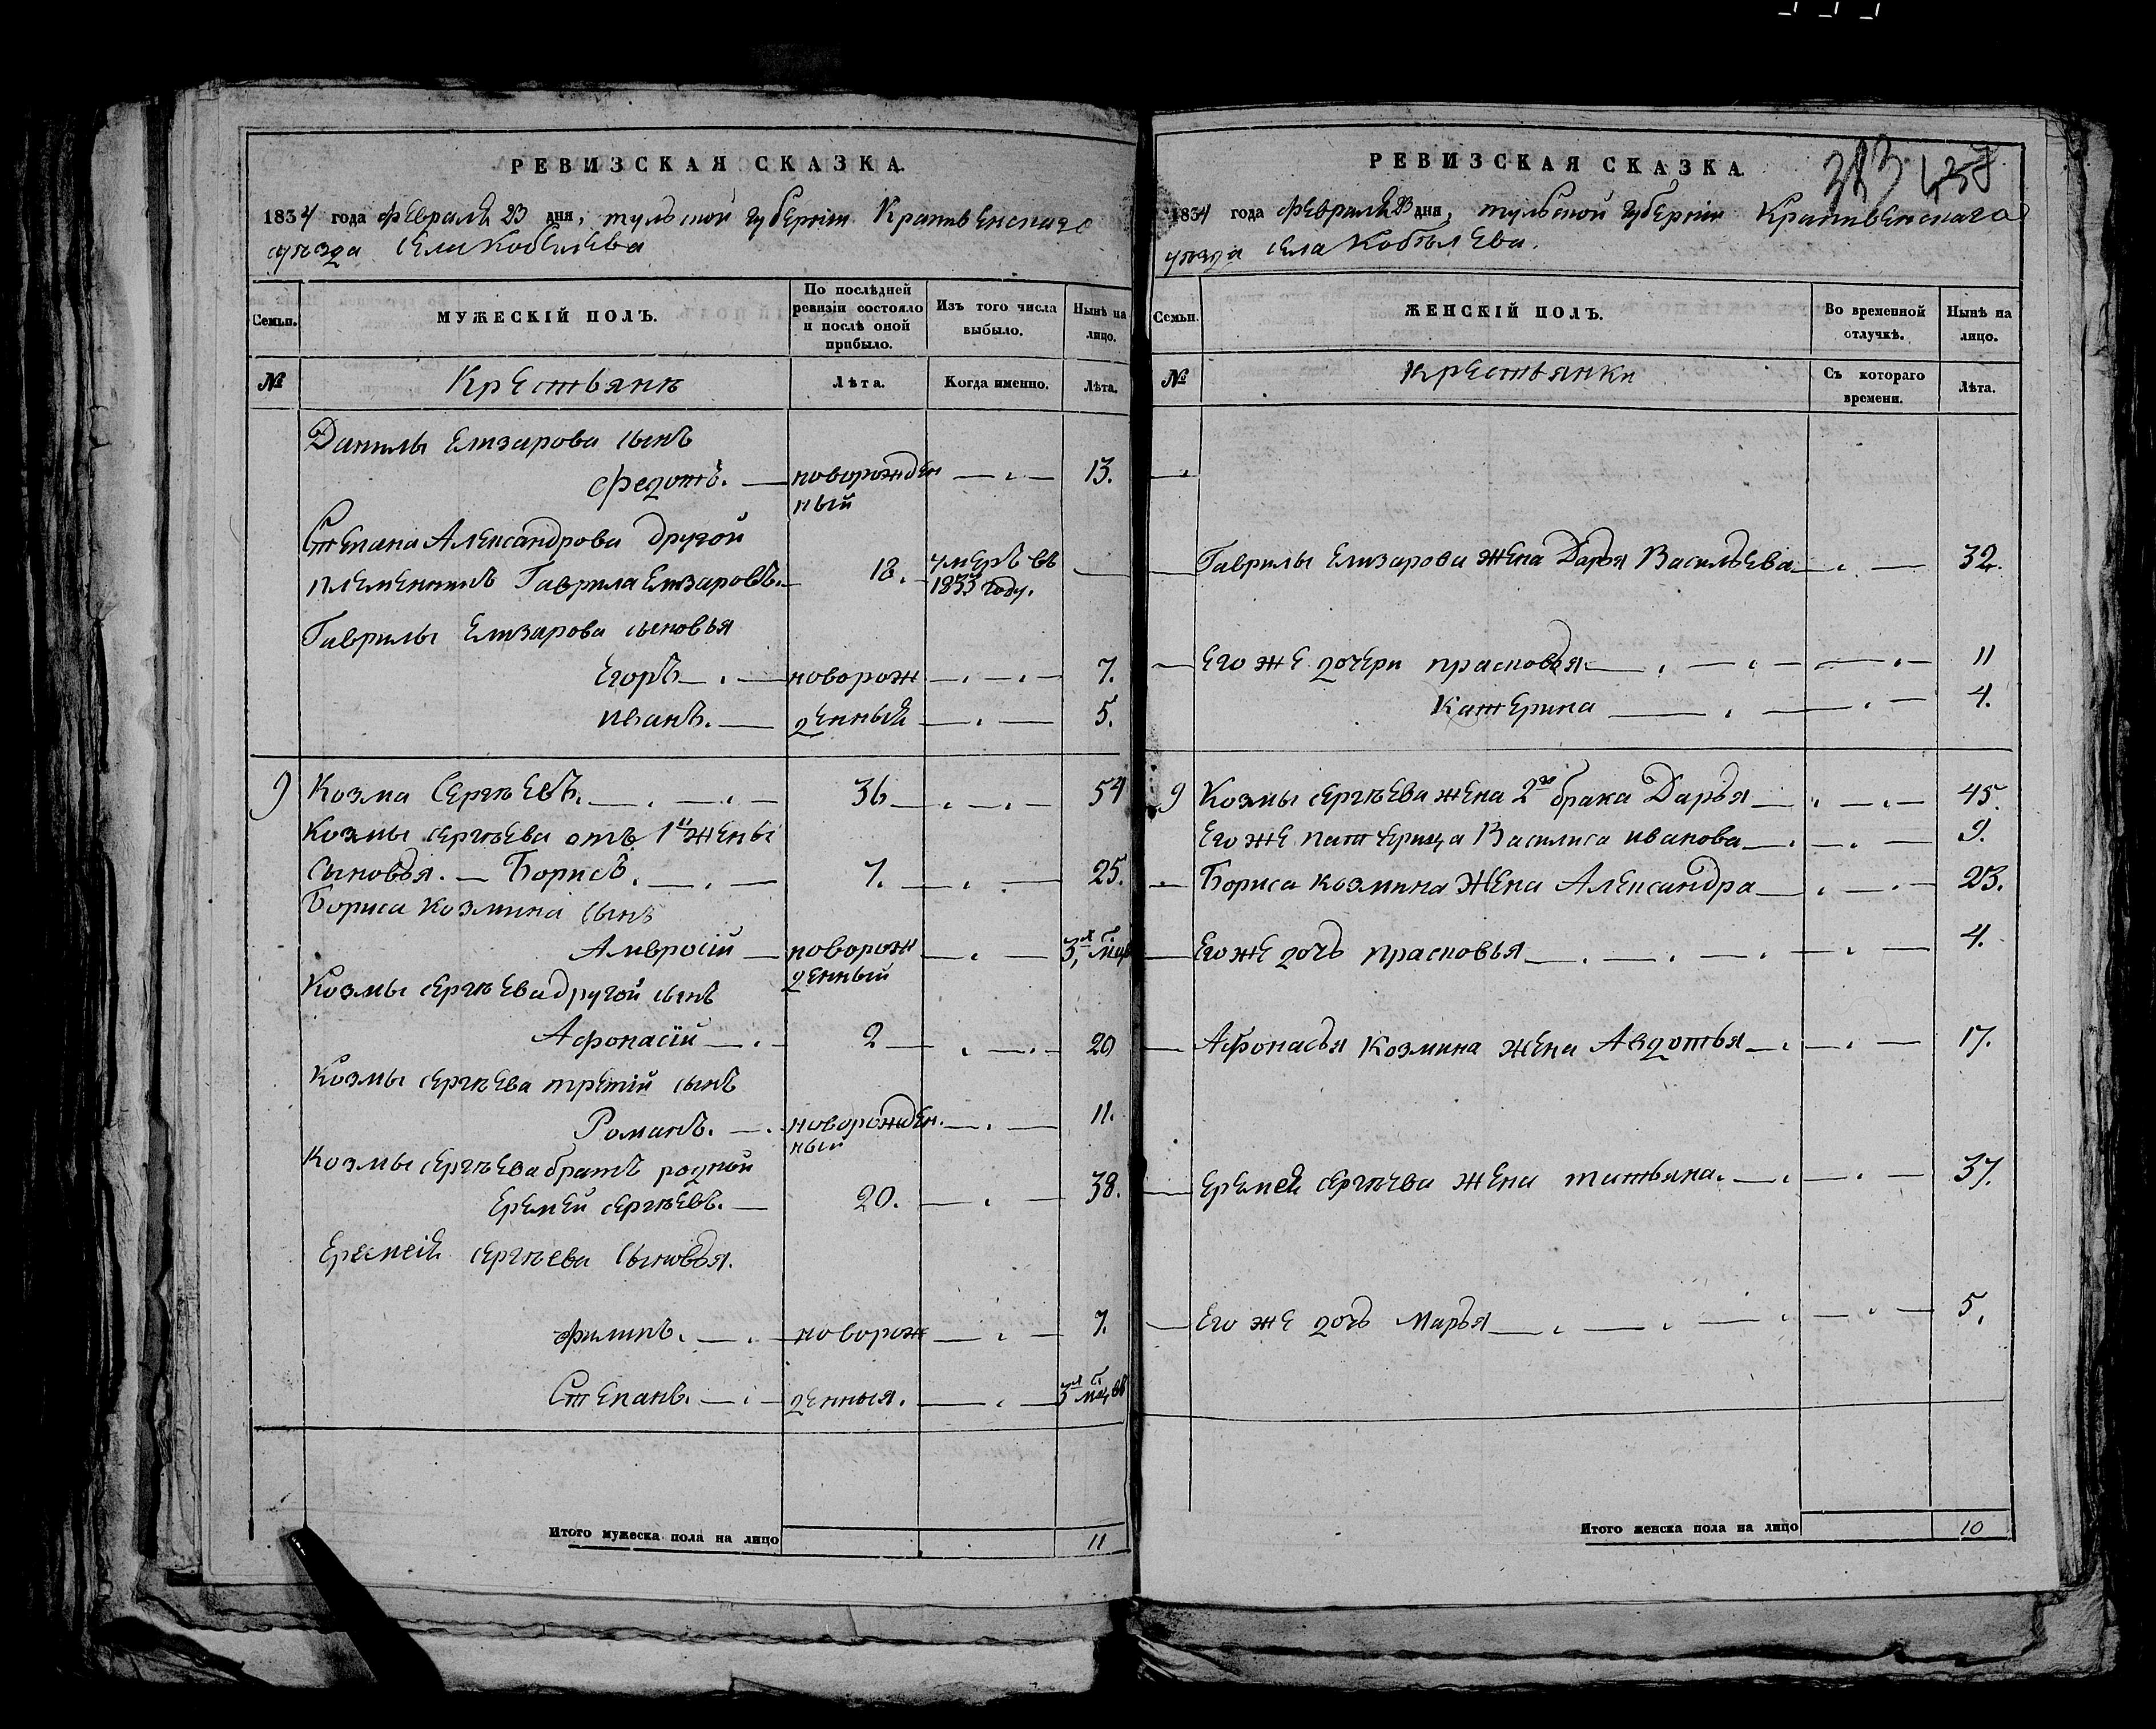 РЕВИЗСКАЯ СКАЗКА.
1834 года Февраля 23 дня, тульской губернiи Крапивенскаго
уѣзда села Кобелева
Семьи.
МУЖЕСКІЙ ПОЛЪ.
По послѣдней
ревизіи состояло
и послѣ оной
прибыло.
Изъ того числа
выбыло.
Нынѣ на
лицо.
№
Крестьянѣ
Лѣта.
Когда именно.
Лѣта.
Данилы Елизарова сынъ
Федотъ. новорожден 13.
ный
Степана Александрова другой
племенникъ Гаврила Елизаровъ. 18. умеръ въ
1833 году.
Гаврилы Елизарова сыновья
Егоръ новорож 7.
Иванъ. денный 5.
9 Козма Сергѣевъ. 36 54
Козмы сергѣева отъ 1й жены
сыновья. Борисъ. 7. 25.
Бориса козмина сынъ
Амвросій новорож 3х мцъ
денный
Козмы сергѣева другой сынъ
Афонасій 2 20
Козмы сергѣева третій сынъ
Романъ. новорожден. 11.
ный
Козмы сергѣева братъ родной
Еремей сергѣевъ. 20. 38.
Еремея сергѣева сыновья.
Филипъ. новорож 7.
Степанъ. денныя. 3х мцъ
Итого мужеска пола на лицо 11
РЕВИЗСКАЯ СКАЗКА.
1834 года Февраля 23 дня, тульской губернiи Крапивенскаго
уѣзда села Кобылева.
Семьи.
ЖЕНСКІЙ ПОЛЪ.
Во временной
отлучкѣ.
Нынѣ на
лицо.
№
Крестьянки
Съ котораго
времени.
Лѣта.
Гаврилы Елизарова жена Дарья Васильева 32.
Его же дочери прасковья 11
Катерина 4.
9 Козмы сергѣева жена 2го брака Дарья 45.
Его же патчерица Василиса иванова 9.
Бориса козмина жена Александра 23.
Его же дочь прасковья 4.
Афонасья Козмина жена Авдотья 17.
Еремея сергѣева жена татьяна. 37.
Его же дочь марья 5.
Итого женска пола на лицо 10